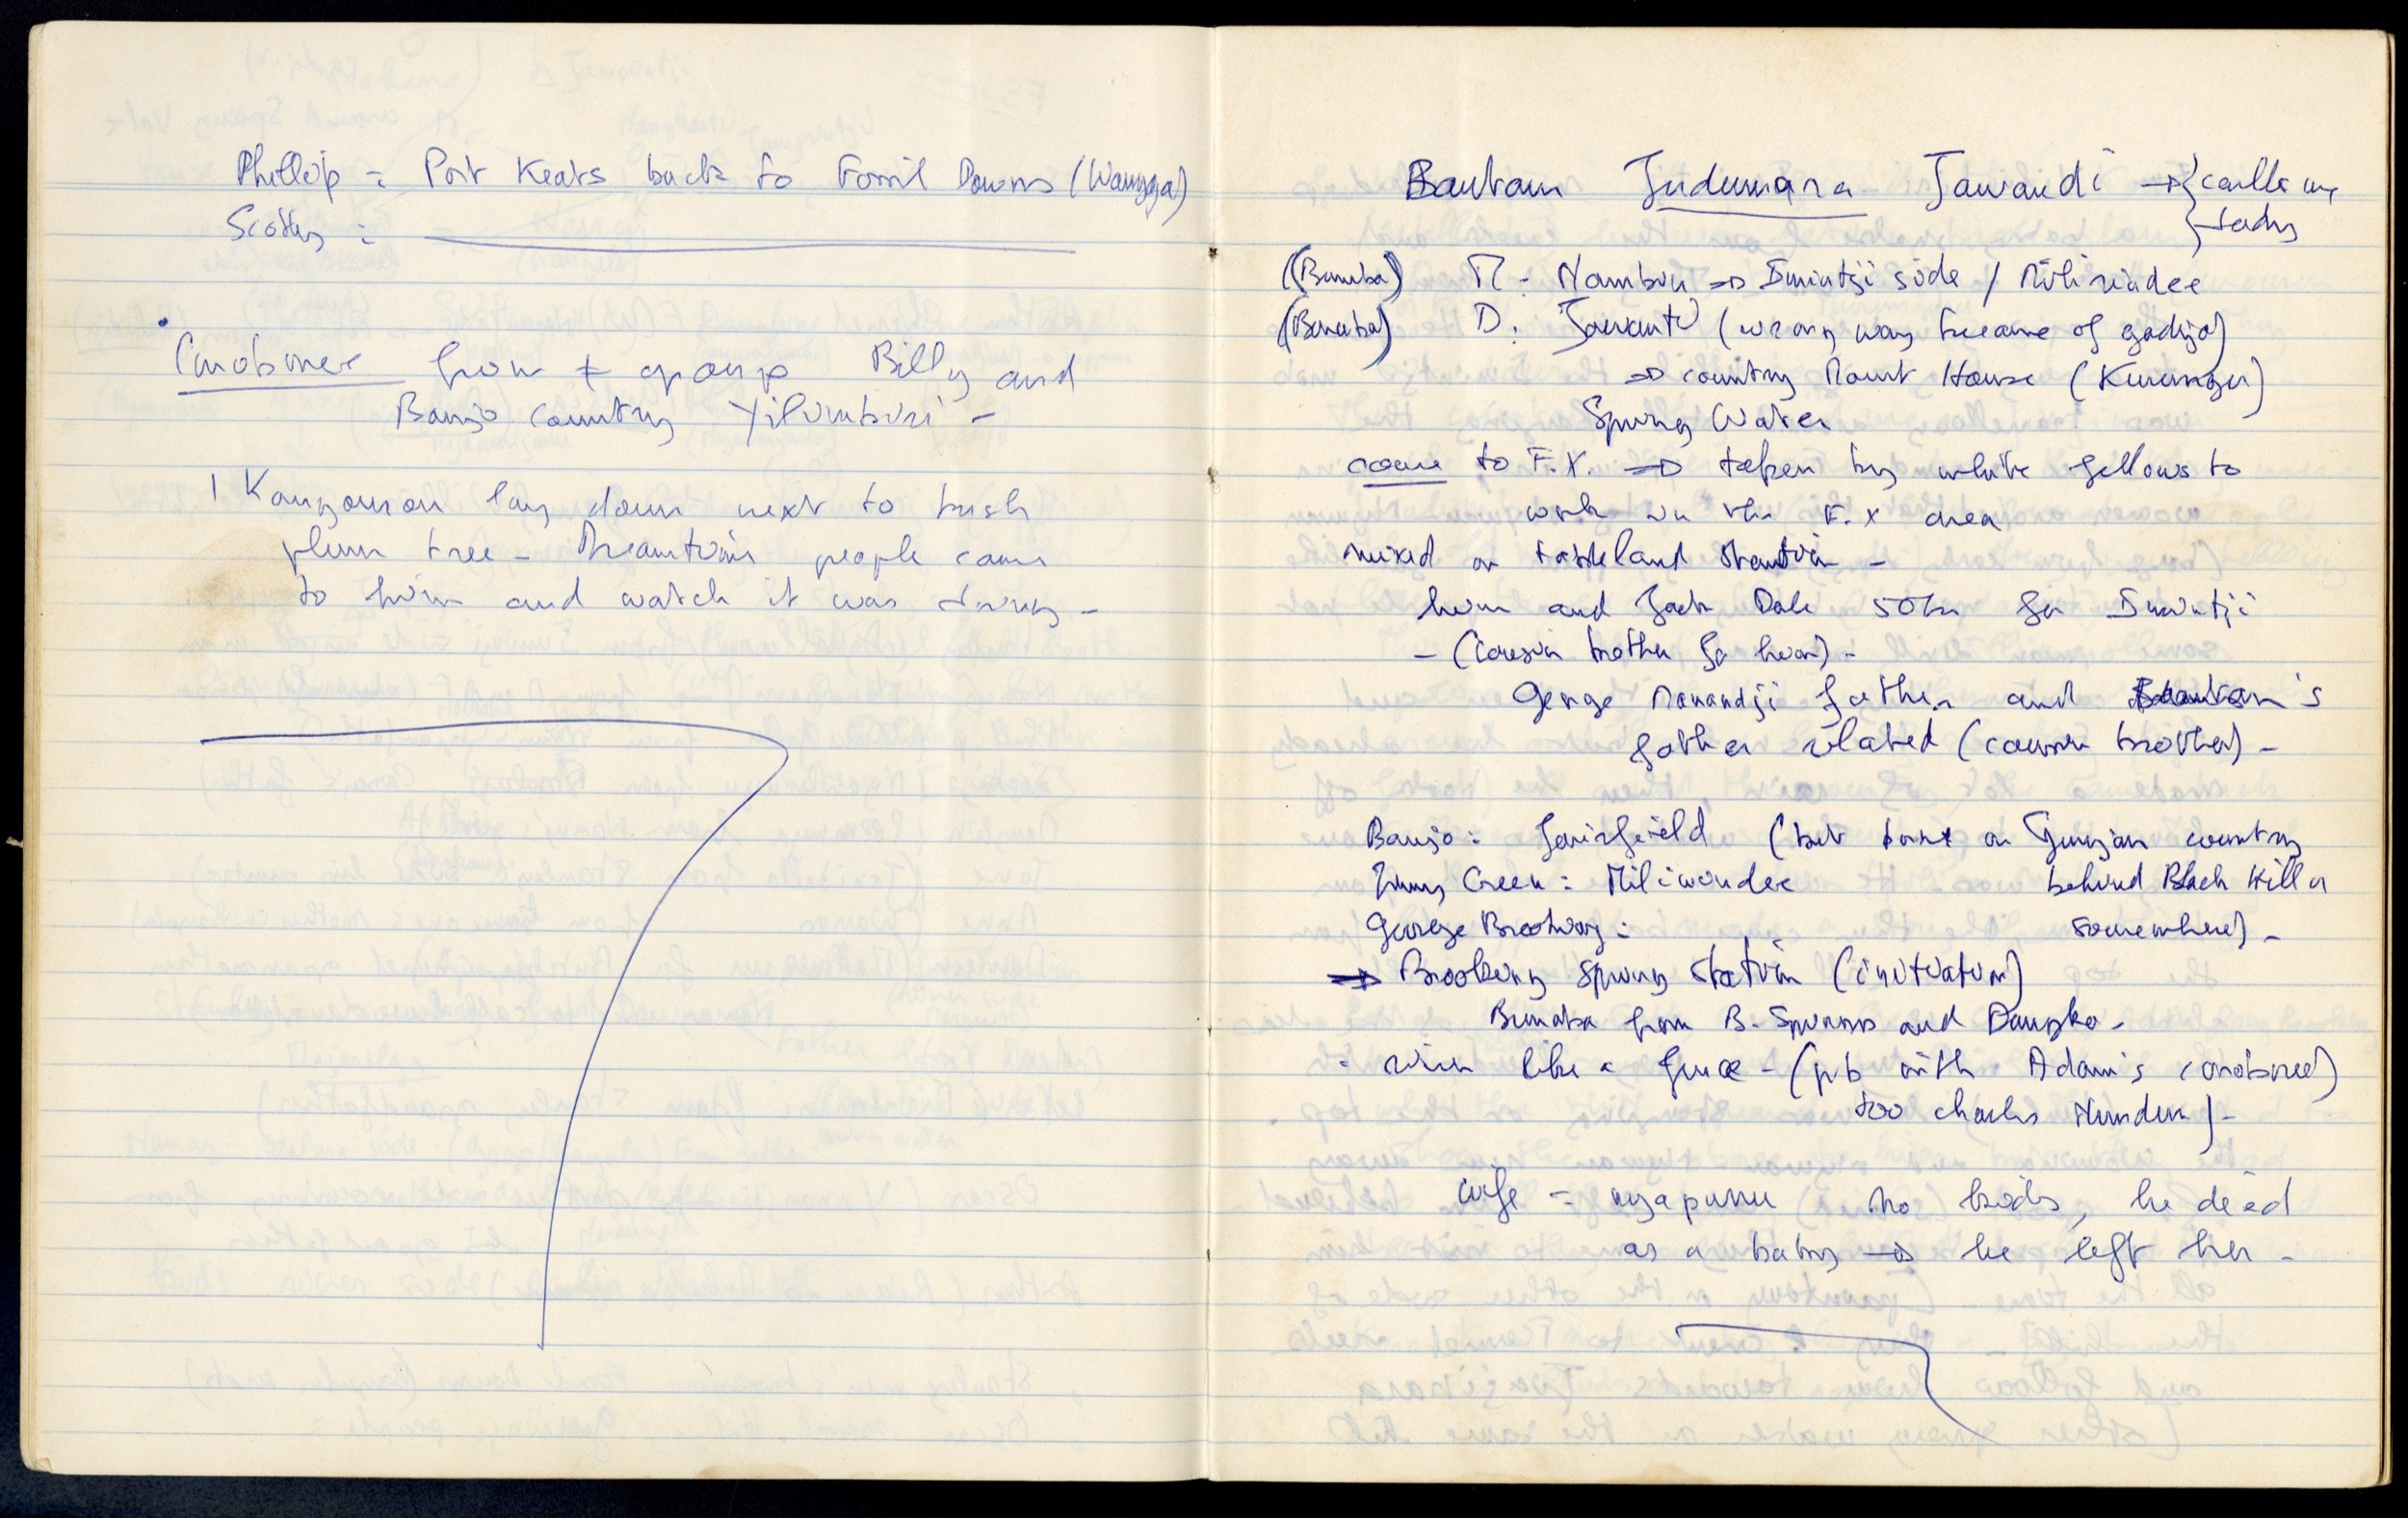 Phillip = Port Keats back to Fossil Downs (Wangga)
Scotty =
Coroboree from ≠ group Billy and
Banjo country Yilimbiri -
1 Kangouroo lay down next to bush
plum tree - Dreamtime people came
to him and watch it was
Bantam Judumara Jawandi →
(Bunuba) M : Nambin → Imintji side / Miliwindee
(Bunuba) D : (wrong way because of gadiya)
→ country Mount House
Spring Water
come to F.X. → taken by white fellows to
work in the F.X area
mixed on tableland station -
him and Jack Dale for Imintji
- (cousin brother for him) -
George Manandji father and Bantam's
father related (cousin brother) -
Banjo : Fairfield (but born on country
Jimmy Green : Miliwindee behind Black Hill or
George Brooking : somewhere) -
→ Brooking Spring Station (initiation)
Bunaba from B. Springs and Danggko -
- wire like a fence - (job with Adam's corobree)
too Charles
wife = nyapurru no kids, he died
as a baby → he left her -